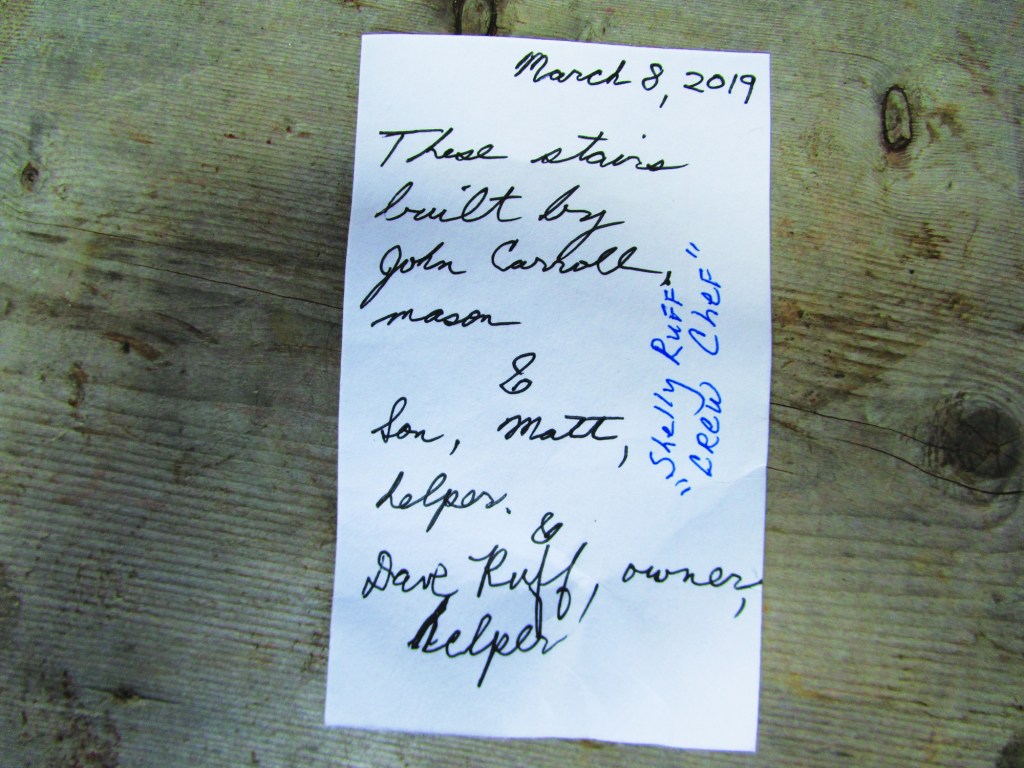 March 8, 2019
These stairs
built by
John Carroll,
mason
&
Son, Matt,
helper.
&
Dave Ruff, owner,
helper
Shelly Ruff
"CREW Chef"